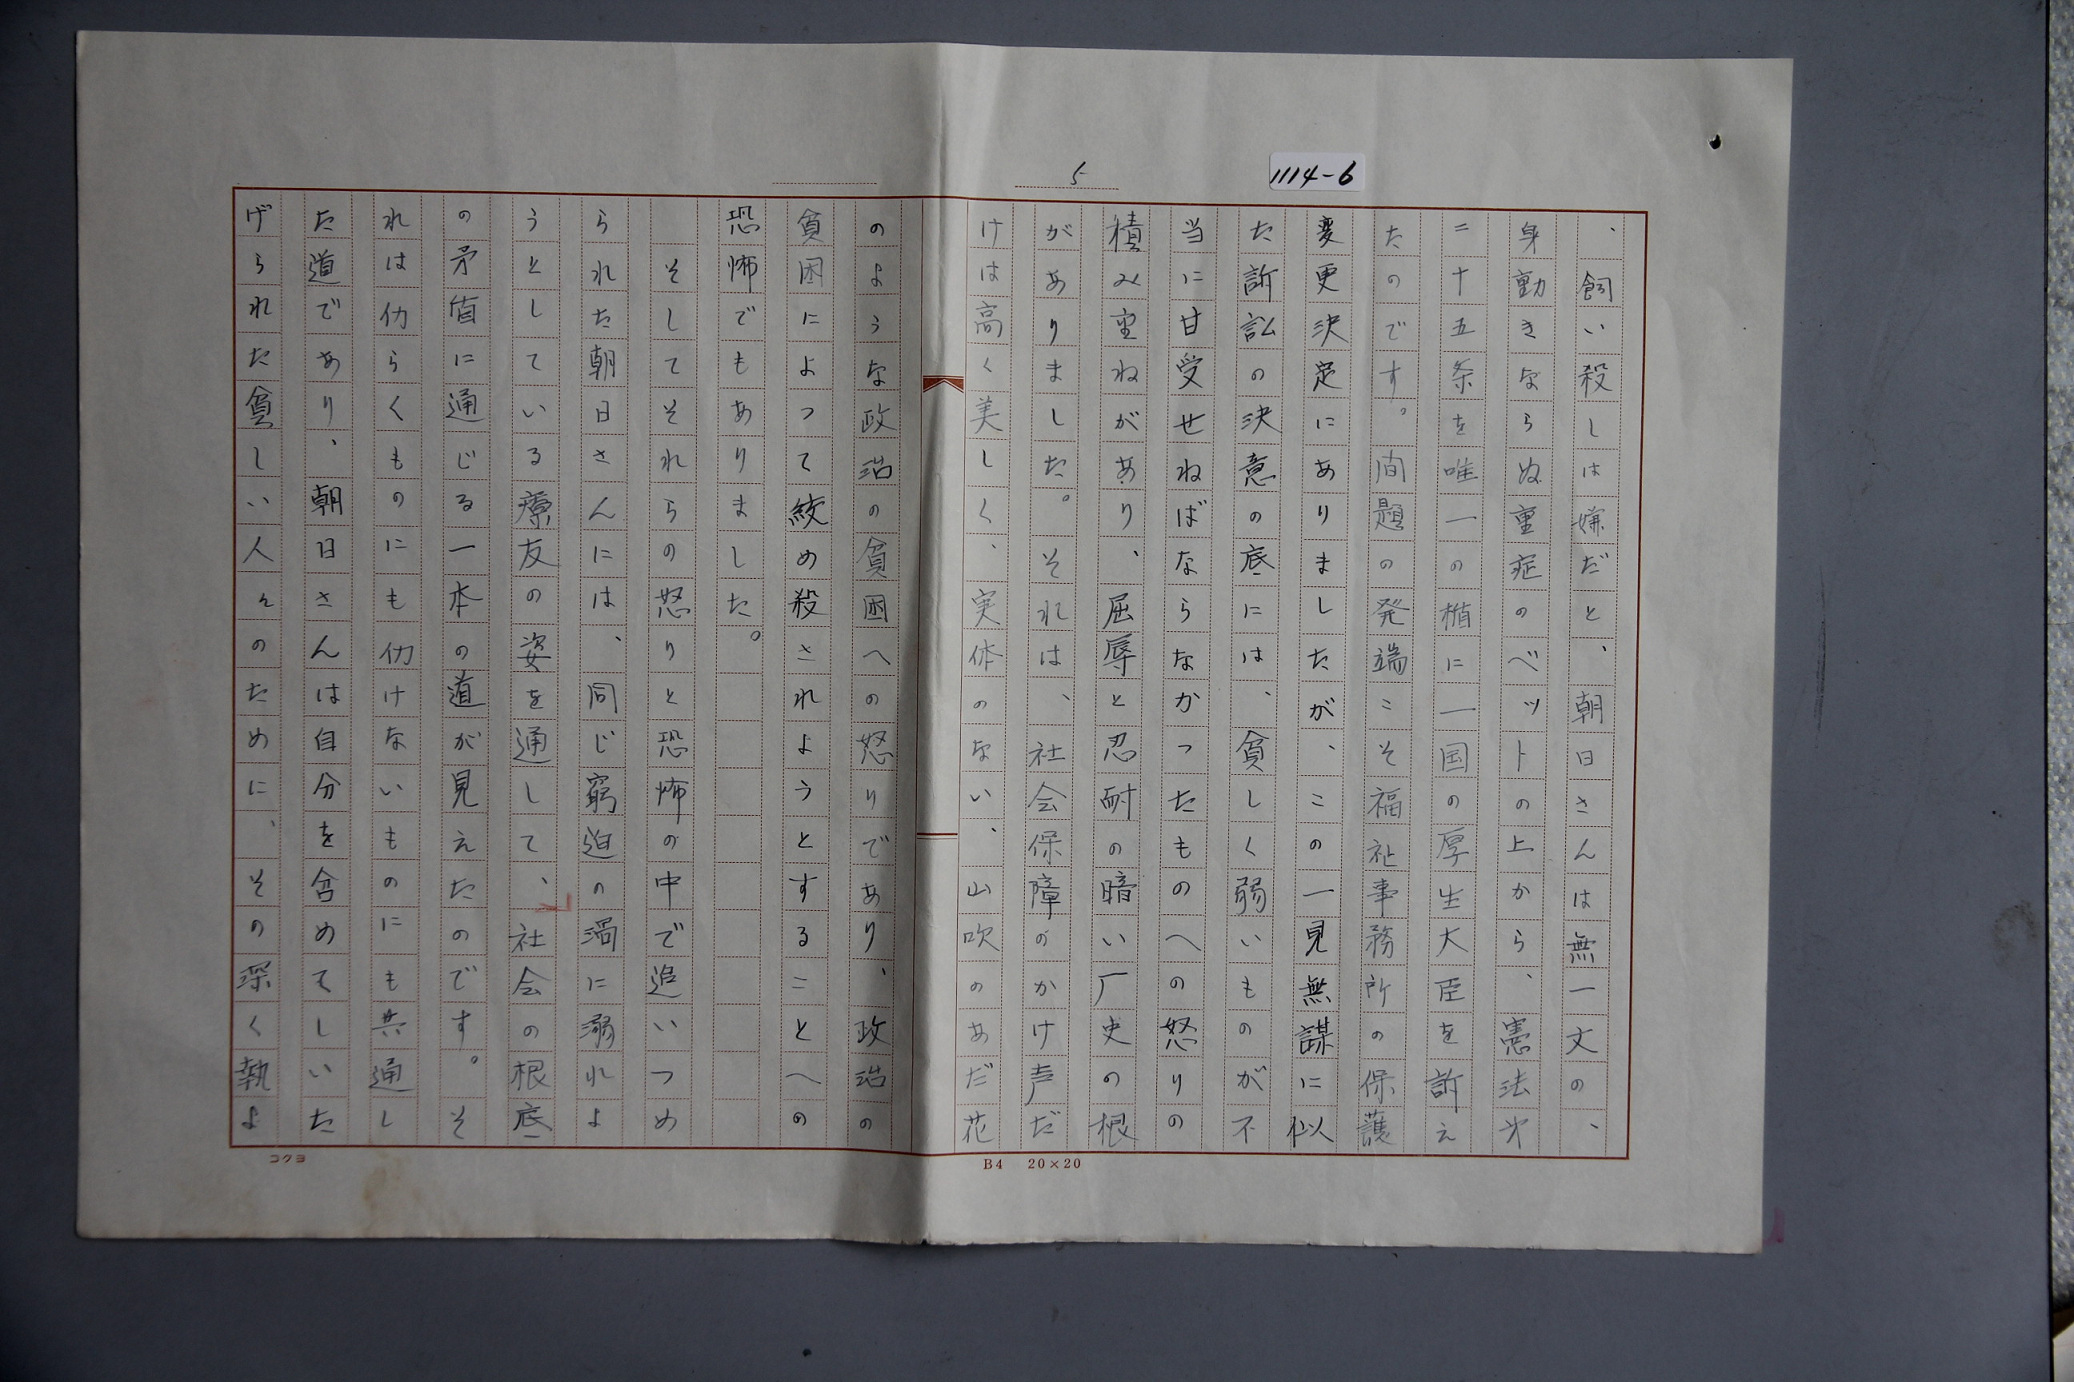 5
1114-6
、飼い殺しは嫌だと、朝日さんは無一文の、
身動きならぬ重症のベットの上から、憲法才
二十五条を唯一の楯に一国の厚生大臣を訴え
たのです。問題の発端こそ福祉事務所の保護
変更決定にありましたが、この一見無謀に似
た訴訟の決意の底には、貧しく弱いものが不
当に甘受せねばならなかったものへの怒りの
積み重ねがあり、屈辱と忍耐の暗い厂史の根
がありました。それは、社会保障のかけ声だ
けは高く美しく、実体のない、山吹のあだ花
のような政治の貧困への怒りであり、政治の
貧困によって絞め殺されようとすることへの
恐怖でもありました。
そしてそれらの怒りと恐怖の中で追いつめ
られた朝日さんには、同じ窮迫の渦に溺れよ
うとしている療友の姿を通して、社会の根底
の矛盾に通じる一本の道が見えたのです。そ
れは仂らくものにも仂けないものにも共通し
た道であり、朝日さんは自分を含めてしいた
げられた貧しい人々のために、その深く執よ
コクヨ
B4 20×20